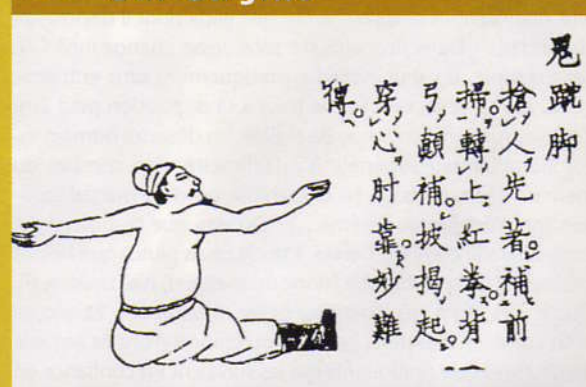 鬼蹴脚
搶人先著補前
掃轉上紅拳背
弓顛補披揭起
穿心肘靠妙難
傳